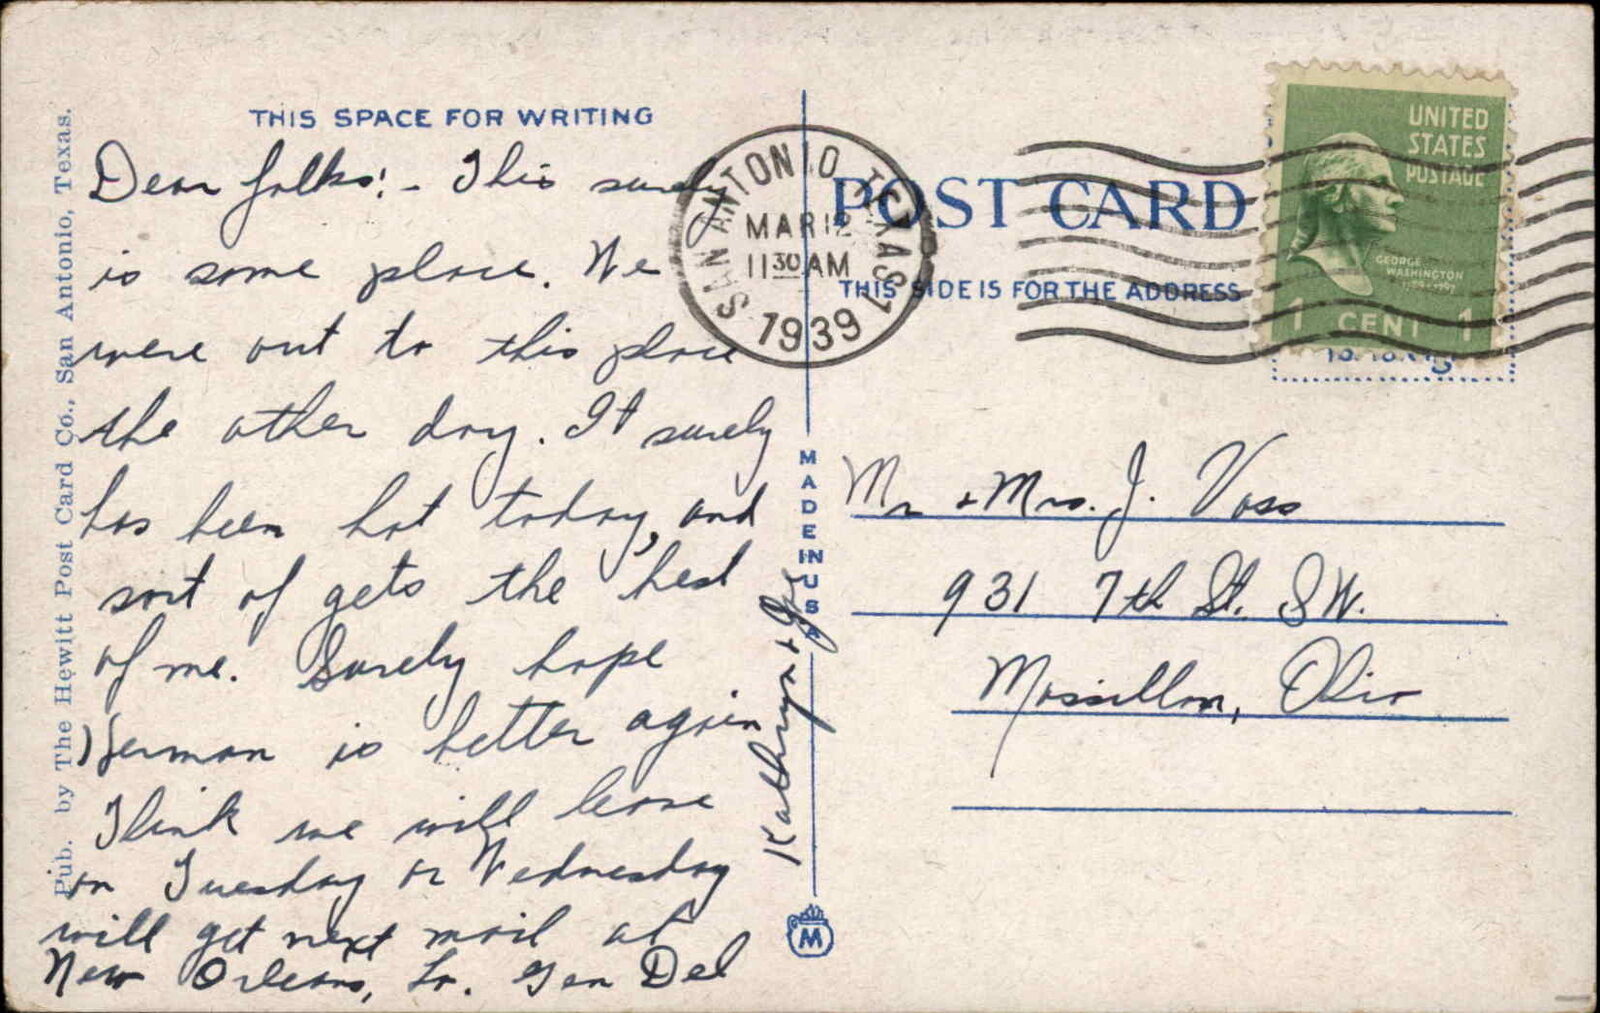 THIS SPACE FOR WRITING
Dear folks:- This surely
is some place. We
were out to this place
the other day. It surely
has been hot today, and
sort of gets the best
of me. Surely hope
Herman is better again
Think we will leave
on Tuesday or Wednesday
will get next mail at
New Orleans, La. Gen Del
Kathryn + Joe
Pub. by The Hewitt Post Card Co., San Antonio, Texas.
SAN ANTONIO, TEXAS 1
MAR 12
11 30 AM
1939
POST CARD
THIS SIDE IS FOR THE ADDRESS
UNITED
STATES
POSTAGE
GEORGE
WASHINGTON
1789-1797
1 CENT 1
MADE IN USA
M
Mr + Mrs. J. Voss
931 7th St. S W.
Massillon, Ohio